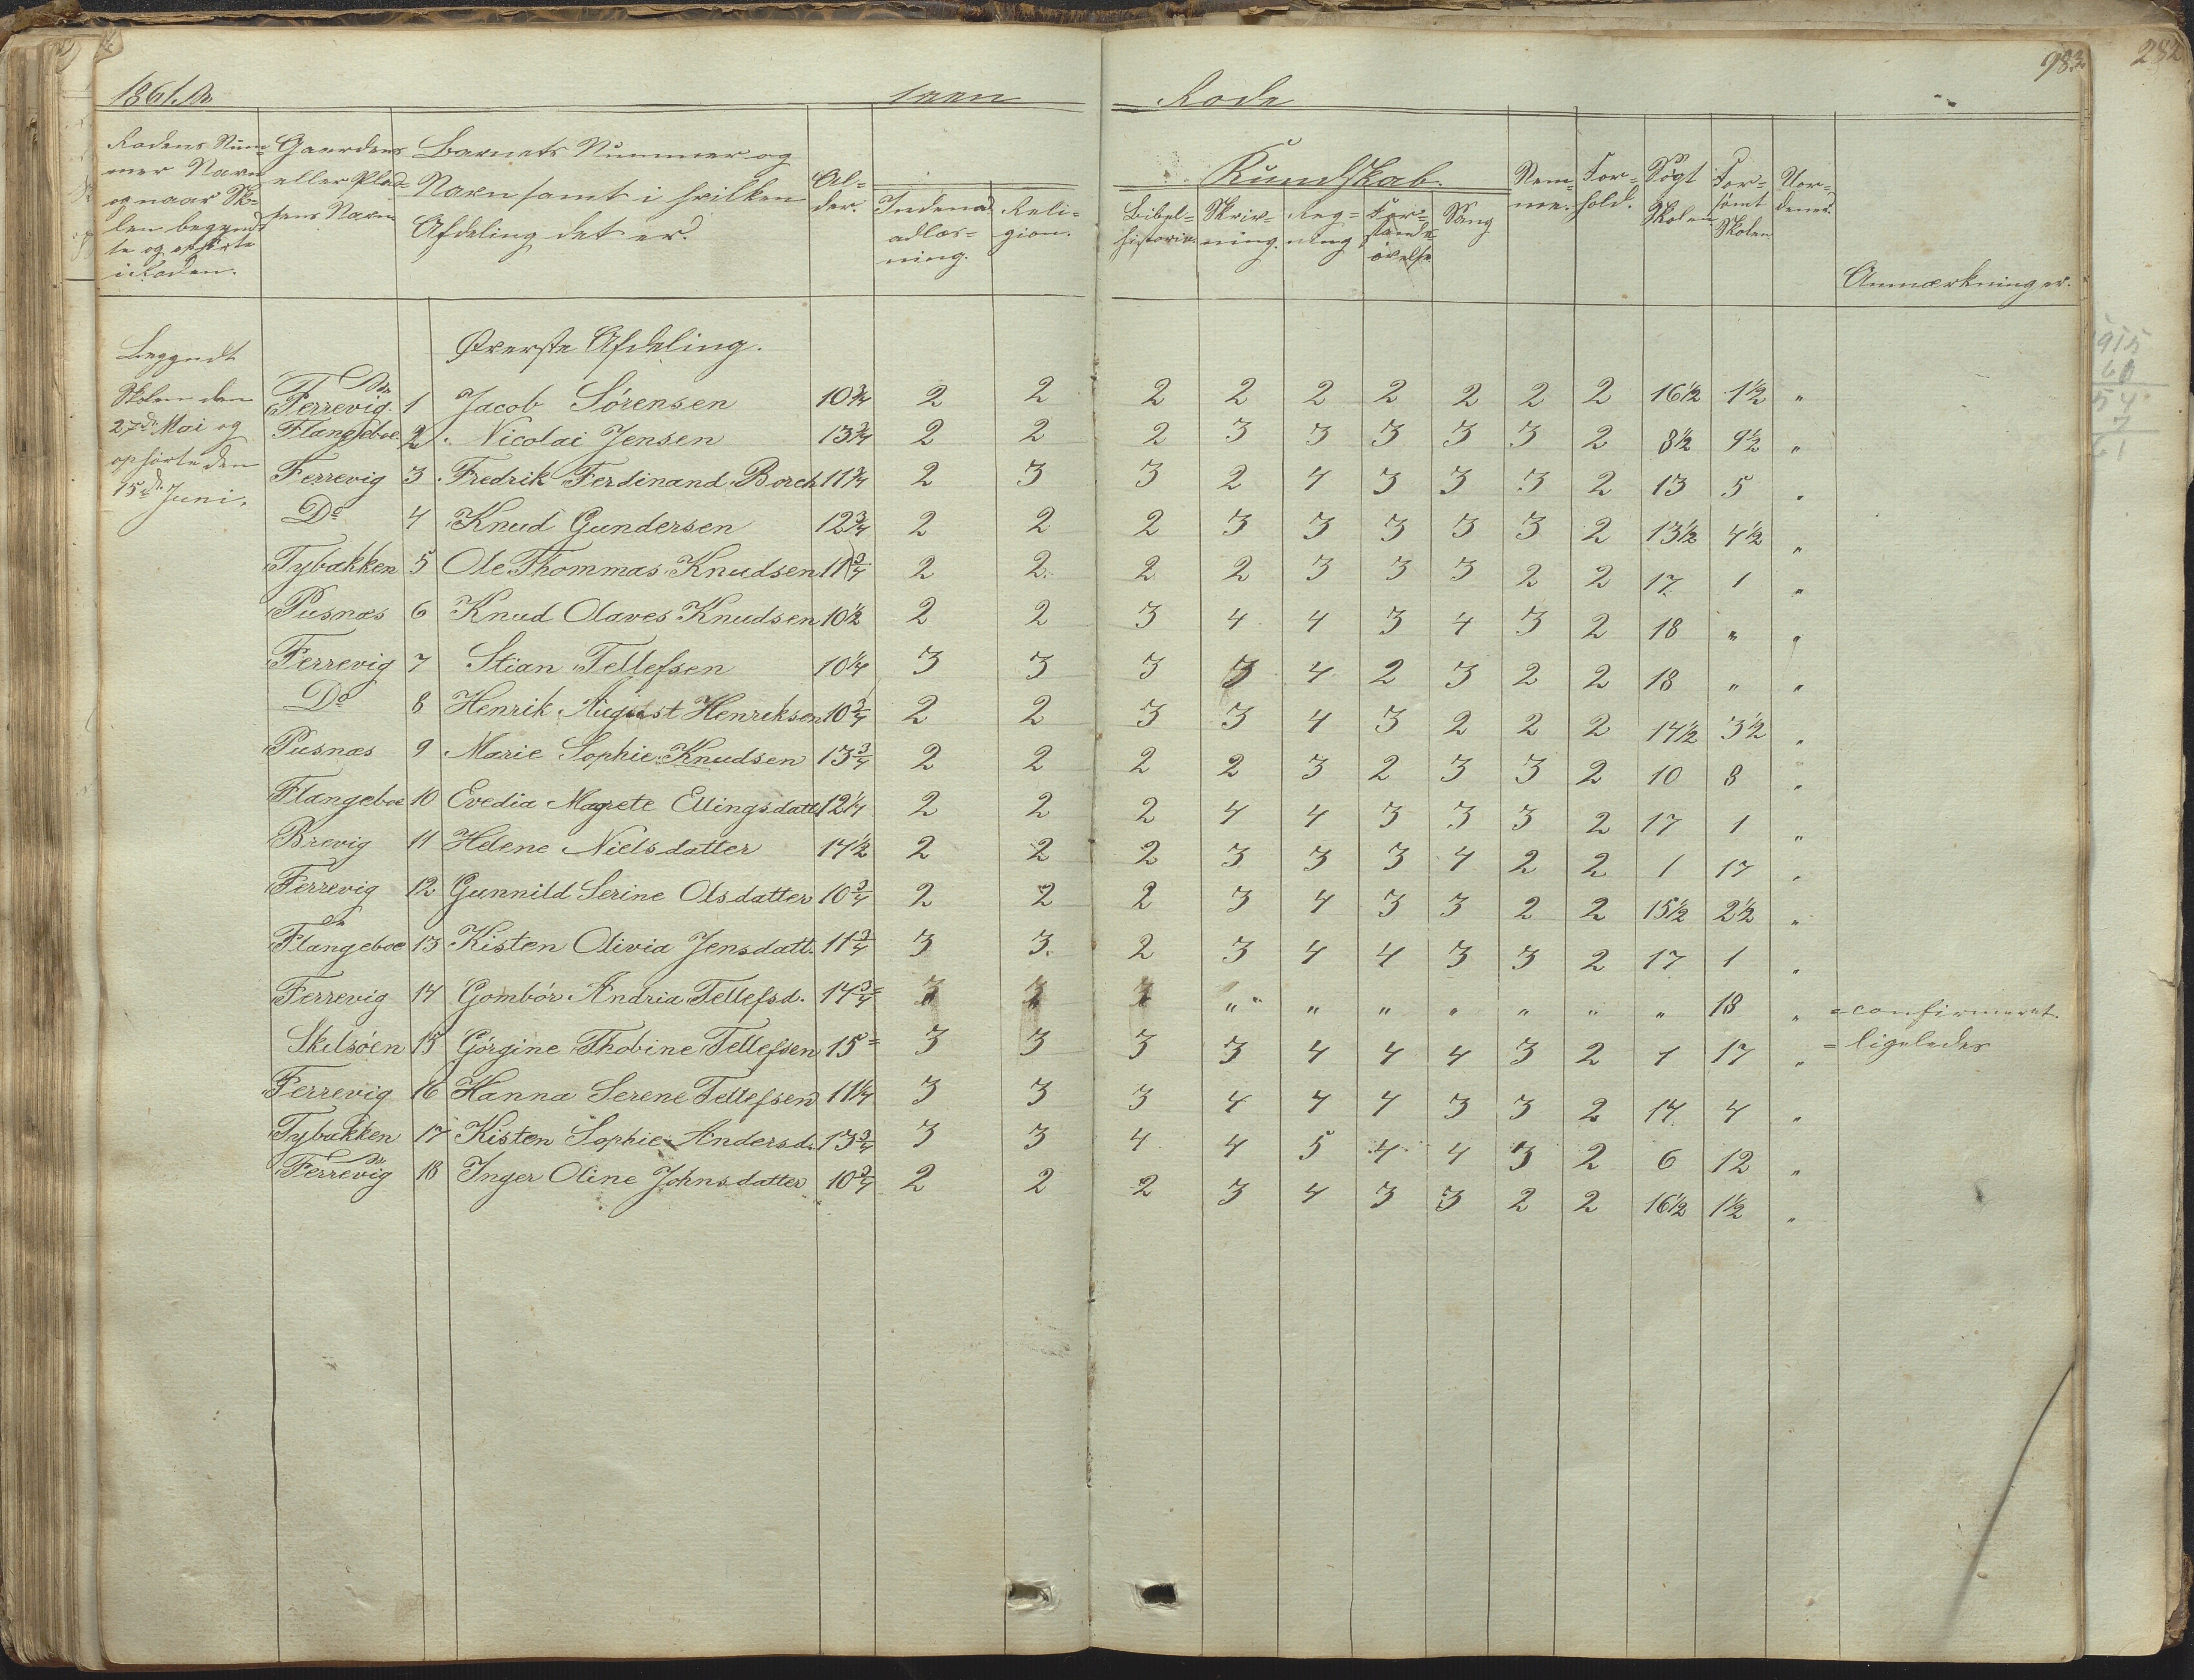 983 282
1861
Rode
Rodens Num-
mer Navn
og naar Sko-
len begynd-
te og ophørte
i Roden.
Gaardens
eller Plad-
sens Navn
Barnets Nummer og
Navn samt i hvilken
Afdeling det er.
Al-
der.
Indenad
adlæs-
ning.
Reli-
gion.
Kundskab.
Bibel-
historie
Skriv-
ning.
Reg-
ning
For-
stands
øvelse
Sang
Nem-
me.
For-
hold.
Søgt
Skolen
For-
sømt
Skolen
Uor-
dener.
Anmærkninger.
Begyndt
Skolen den
27de Mai og
ophørte den
15de Juni.
Øverste Afdeling.
Ferrevig 1 Jacob Sørensen 10 3/4 2 2 2 2 2 2 2 2 2 16 1/2 1 1/2 "
Flangeboe 2 Nicolai Jensen 13 3/4 2 2 2 3 3 3 3 3 2 8 1/2 9 1/2 "
Ferrevig 3 Fredrik Ferdinand Borch 11 3/4 2 3 3 2 4 3 3 3 2 13 5 "
Do 4 Knud Gundersen 12 3/4 2 2 2 3 3 3 3 3 2 13 1/2 4 1/2 "
Tybakken 5 Ole Thommas Knudsen 11 3/4 2 2 2 2 3 3 3 2 2 17 1 "
Pusnæs 6 Knud Olaves Knudsen 10 1/2 2 2 3 4 4 3 4 3 2 18 " "
Ferrevig 7 Stian Tellefsen 10 1/4 3 3 3 3 4 2 3 2 2 18 " "
Do 8 Henrik August Henriksen 10 3/4 2 2 3 3 4 3 2 2 2 14 1/2 3 1/2 "
Pusnæs 9 Marie Sophie Knudsen 13 3/4 2 2 2 2 3 2 3 3 2 10 8 "
Flangeboe 10 Evedia Magrete Ellingsdatt 12 1/4 2 2 2 4 4 3 3 3 2 17 1 "
Brevig 11 Helene Nielsdatter 14 1/2 2 2 2 3 3 3 4 2 2 1 17 "
Ferrevig 12 Gunnild Serine Olsdatter 10 3/4 2 2 2 3 4 3 3 2 2 15 1/2 2 1/2 "
Flangeboe 13 Kisten Olivia Jensdatt. 11 3/4 3 3. 2 3 4 4 3 3 2 17 1 "
Ferrevig 14 Gombør Andria Tellefsd. 14 3/4 = " " " " " " " 18 " = confirmeret.
Skilsøen 15 Görgine Thobine Tellefsen 15 = 3 3 3 3 4 4 4 3 2 1 17 " = ligeledes
Ferrevig 16 Hanna Serene Tellefsen 11 1/4 3 3 3 4 4 4 3 3 2 14 4 "
Tybakken 17 Kisten Sophie Andersd. 13 3/4 3 3 4 4 5 4 4 3 2 6 12 "
Ferrevig 18 Inger Oline Johnsdatter 10 3/4 2 2 2 3 4 3 3 2 2 16 1/2 1 1/2 "